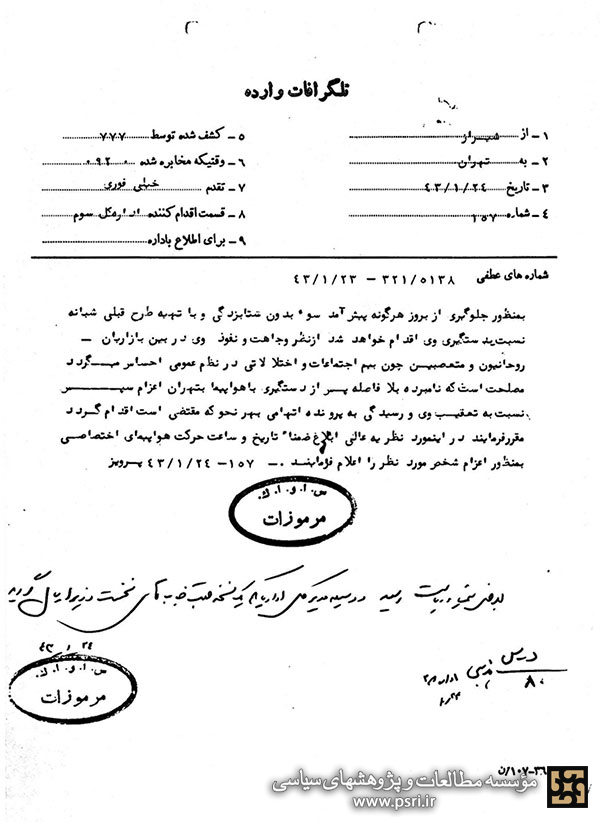 تلگرافات وارده
۱ - از شیراز
۲ - به تهران
۳ - تاریخ ۴۳/۱/۲۴
۴ - شماره ۱۵۷
۵ - کشف شده توسط ۷۷۷
۶ - وقتیکه مخابره شده ۰۹۲۰
۷ - تقدم خیلی فوری
۸ - قسمت اقدام کننده اداره کل سوم
۹ - برای اطلاع باداره
شماره های عطفی ۳۲۱/۵۱۳۸ - ۴۳/۱/۲۳
بمنظور جلوگیری از بروز هرگونه پیش آمد سوء بدون شتابزدگی و با تهیه طرح قبلی شبانه
نسبت بدستگیری وی اقدام خواهد شد ازنظر وجاهت و نفوذ وی در بین بازاریان -
روحانیون و متعصبین چون بیم اجتماعات و اختلالاتی در نظم عمومی احساس میگردد
مصلحت است که نامبرده بلافاصله پس از دستگیری باهواپیما بتهران اعزام سپس
نسبت به تعقیب وی و رسیدگی به پرونده اتهامی بهر نحو که مقتضی است اقدام گردد
مقررفرمایند در اینمورد نظریه عالی ابلاغ ضمناً تاریخ و ساعت حرکت هواپیمای اختصاصی
بمنظور اعزام شخص مورد نظر را اعلام فرمایند ۰- ۱۵۷- ۴۳/۱/۲۴ پرویز
س.ا.و.ا.ک.
مرموزات
نخست وزیر ارسال گردید
۲۴ / ۱ / ۴۳
س.ا.و.ا.ک.
مرموزات
۸۰
۳۶-۱۰۷/ن
مؤسسه مطالعات و پژوهشهای سیاسی
www.psri.ir